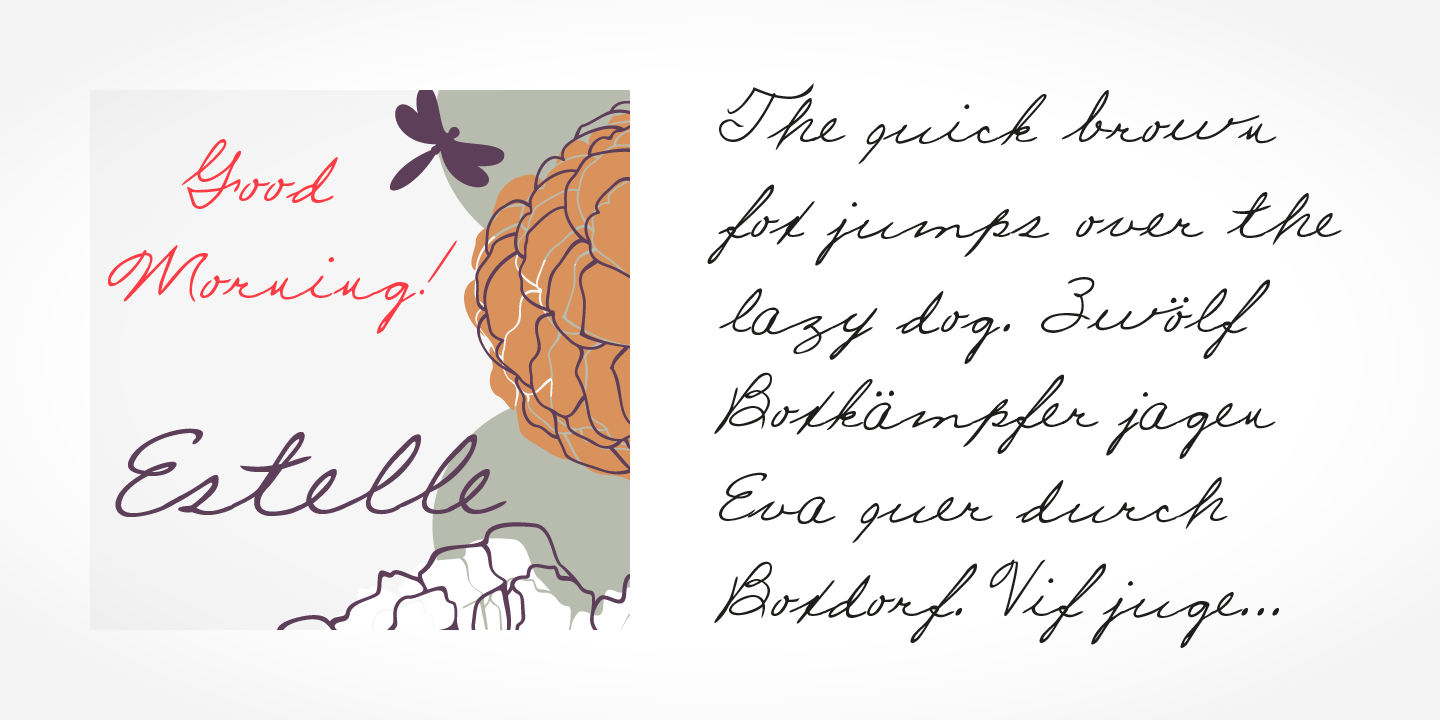 Good
Morning!
Estelle
The quick brown
fox jumps over the
lazy dog. Zwölf
Boxkämpfer jagen
Eva quer durch
Boxdorf. Vif juge...